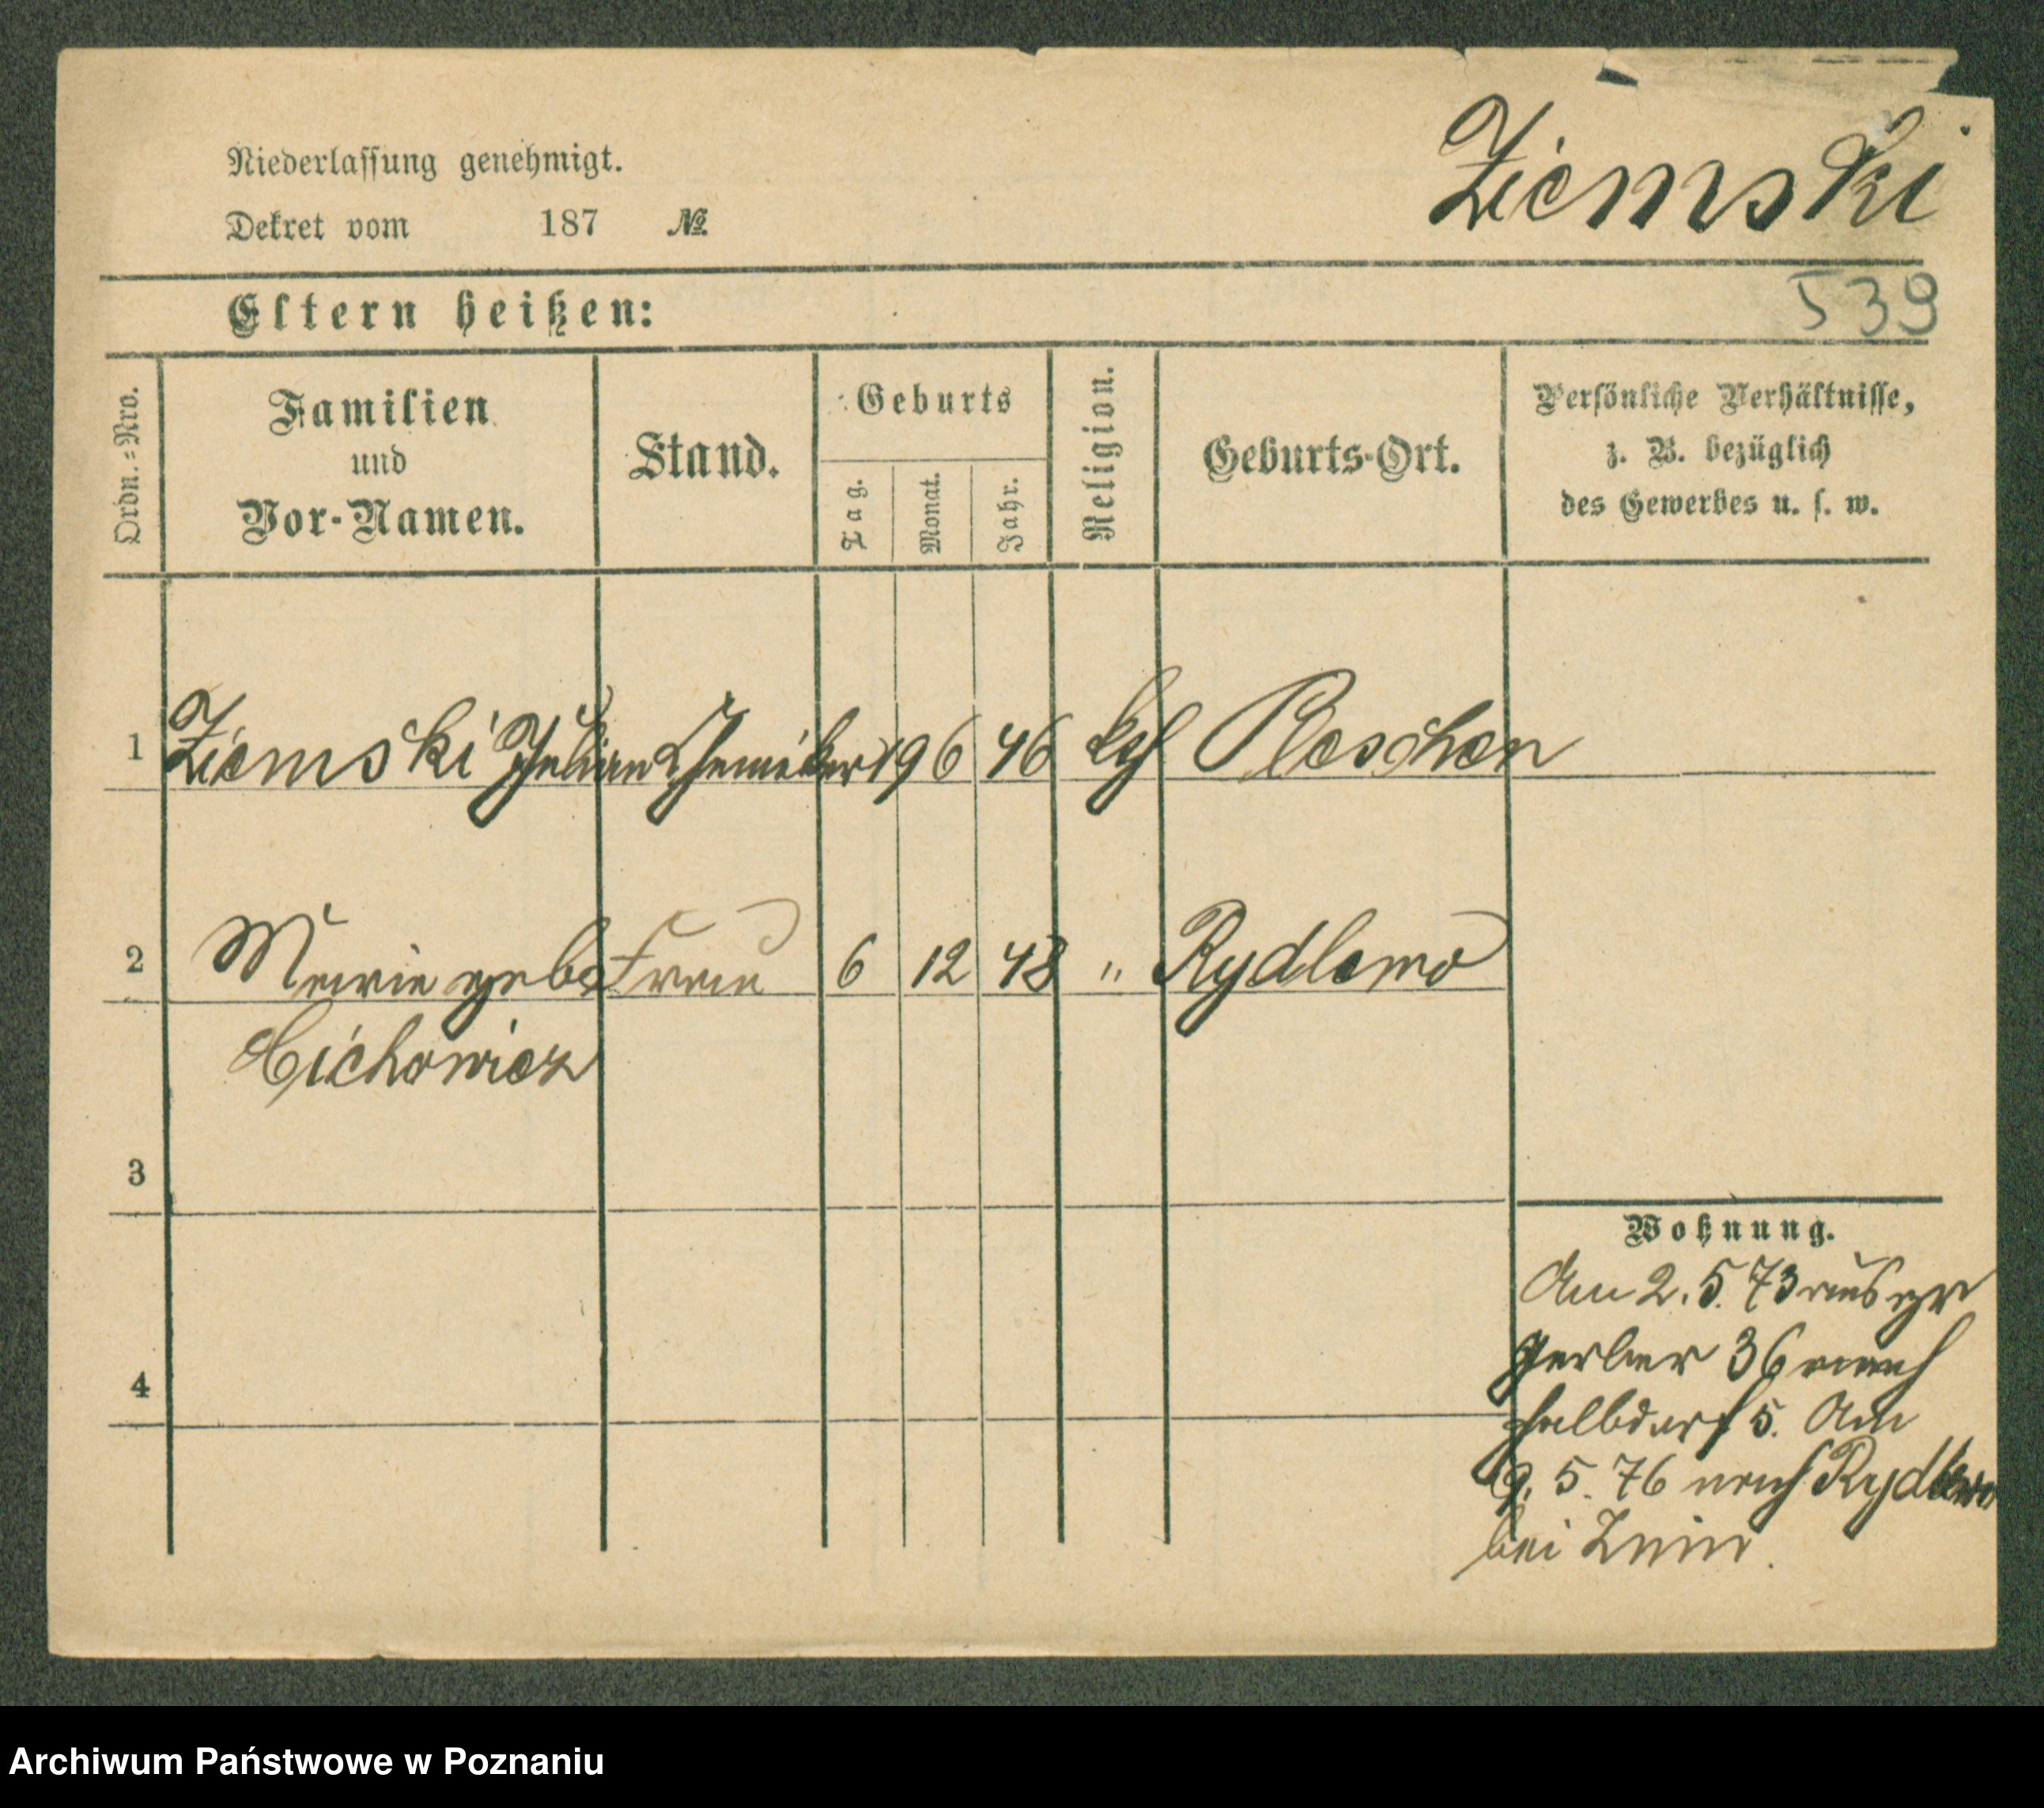 Ziemski
Niederlassung genehmigt.
Dekret vom 187 №
Eltern heißen:
539
Ordn.=Nro.
Familien
und
Vor-Namen.
Stand.
Geburts
Tag.
Monat.
Jahr.
Religion.
Geburts-Ort.
Persönliche Verhältnisse,
z. B. bezüglich
des Gewerbes u. s. w.
1 Ziemski Julian 19 6 46 kth Pleschen
2 Marie geb. Frau 6 12 48 " Rydlewo
Cichowicz
3
4
Wohnung.
Am 2. 5. 73 aus gr
Gerber 36 nach
Halbdorf 5. Am
9. 5. 76 nach Rydlewo
bei Znin.
Archiwum Państwowe w Poznaniu